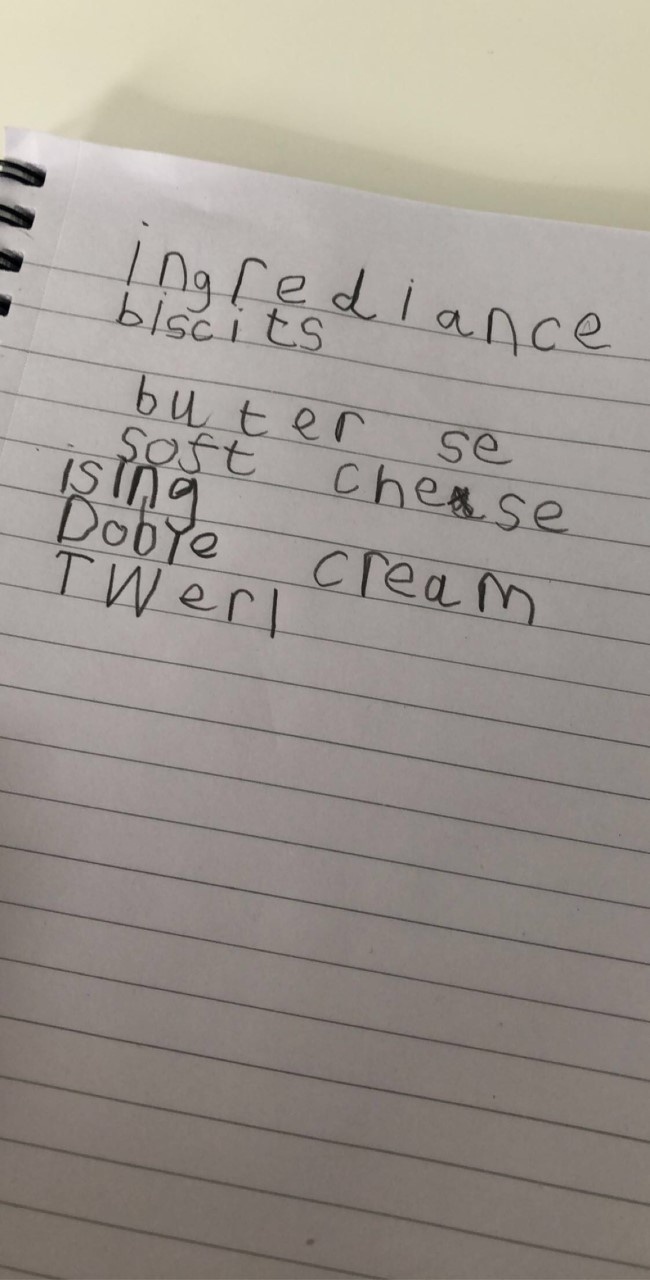 ingrediance
biscits
buter se
soft chease
ising
Dobye cream
TWerl